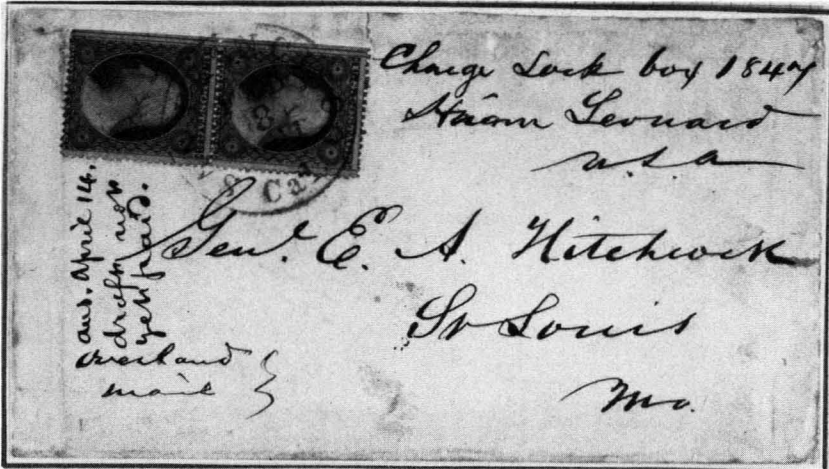 Charge Lock box 1847
Hiram Leonard
U.S.A
Genl. E. A. Hitchcock
St Louis
Mo.
ans. April 14.
draft not
yet paid.
Overland
mail
Cal